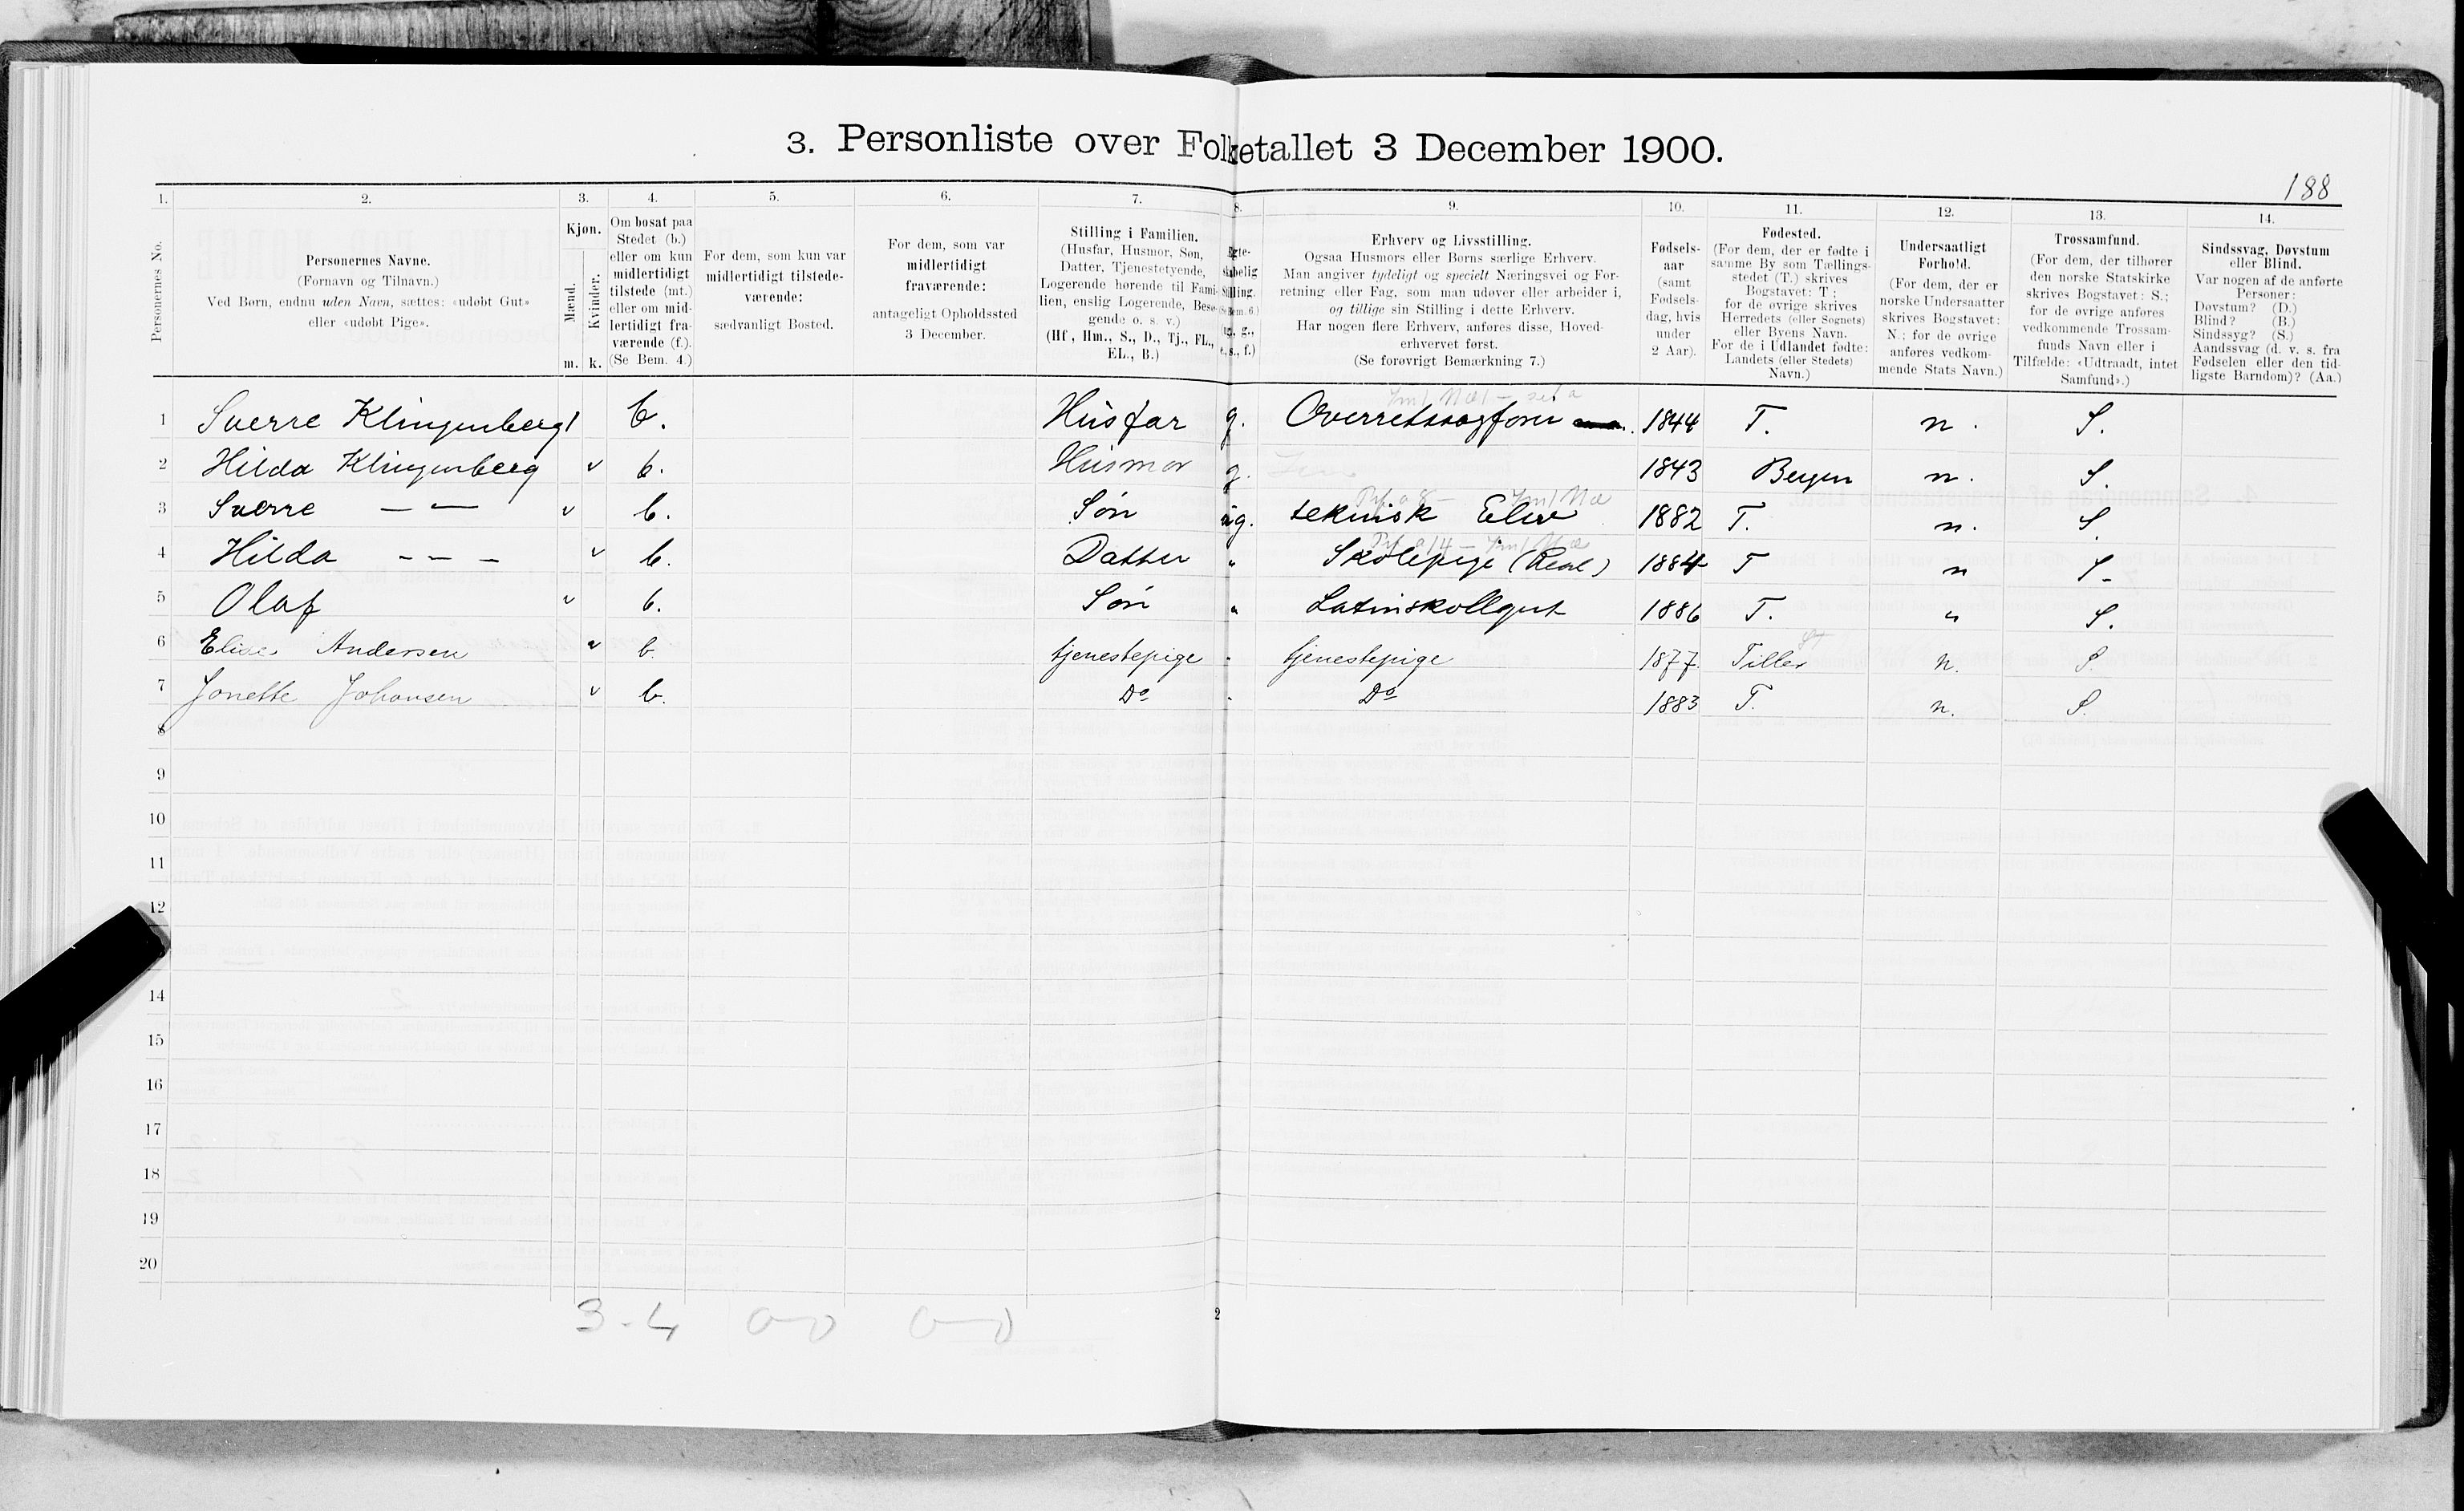 3. Personliste over Folketallet 3 December 1900.
188
1. 2. 3. 4. 5. 6. 7. 8. 9. 10. 11. 12. 13. 14.
Personernes No.
Personernes Navne.
(Fornavn og Tilnavn.)
Ved Børn, endnu uden Navn, sættes: «udøbt Gut»
eller «udøbt Pige».
Kjøn.
Mænd.
Kvinder.
m. k.
Om bosat paa
Stedet (b.)
eller om kun
midlertidigt
tilstede (mt.)
eller om mid-
lertidigt fra-
værende (f.).
(Se Bem. 4.)
For dem, som kun var
midlertidigt tilstede-
værende:
sædvanligt Bosted.
For dem, som var
midlertidigt
fraværende:
antageligt Opholdssted
3 December.
Stilling i Familien.
(Husfar, Husmor, Søn,
Datter, Tjenestetyende,
Logerende hørende til Fami-
lien, enslig Logerende, Besø-
gende o. s. v.)
(Hf., Hm., S., D., Tj., FL.,
EL., B.)
Egte-
skabelig
Stilling.
(Se Bem. 6.)
(ug., g.,
e., s., f.)
Erhverv og Livsstilling.
Ogsaa Husmors eller Børns særlige Erhverv.
Man angiver tydeligt og specielt Næringsvei og For-
retning eller Fag, som man udøver eller arbeider i,
og tillige sin Stilling i dette Erhverv.
Har nogen flere Erhverv, anføres disse, Hoved-
erhvervet først.
(Se forøvrigt Bemærkning 7.)
Fødsels-
aar
(samt
Fødsels-
dag, hvis
under
2 Aar).
Fødested.
(For dem, der er fødte i
samme By som Tællings-
stedet (T.) skrives
Bogstavet: T;
for de øvrige skrives
Herredets (eller Sognets)
eller Byens Navn.
For de i Udlandet fødte:
Landets (eller Stedets)
Navn.)
Undersaatligt
Forhold.
(For dem, der er
norske Undersaatter
skrives Bogstavet:
N.; for de øvrige
anføres vedkom-
mende Stats Navn.)
Trossamfund.
(For dem, der tilhører
den norske Statskirke
skrives Bogstavet: S.;
for de øvrige anføres
vedkommende Trossam-
funds Navn eller i
Tilfælde: «Udtraadt, intet
Samfund».)
Sindssvag, Døvstum
eller Blind.
Var nogen af de anførte
Personer:
Døvstum? (D.)
Blind? (B.)
Sindssyg? (S.)
Aandssvag (d. v. s. fra
Fødselen eller den tid-
ligste Barndom)? (Aa.)
1 Sverre Klingenberg 1 b. Husfar g. Overretssagfører 1844 T. n. S.
2 Hilda Klingenberg v b. Husmor g. 1843 Bergen n. S.
3 Sverre — — v b. Søn ug. teknisk Elev 1882 T. n. S.
4 Hilda - - - v b. Datter " Skolepige (Real) 1884 T n S.
5 Olaf v b. Søn " Latinskolegut 1886 T. " S.
6 Elise Andersen v b. tjenestepige " tjenestepige 1877. Tiller n. S.
7 Jonette Johansen v b. Do " Do 1883 T. n. S.
8
9
10
11
12
14
15
16
17
18
19
20
3-4 0-0 0-0
2